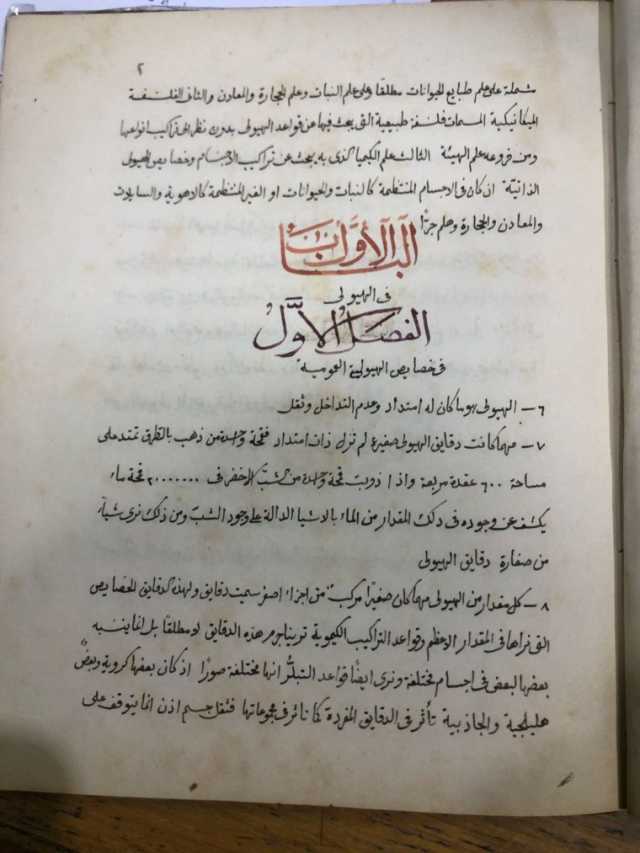 ٢
شملة على علم طبايع الحيوانات مطلقًا وعلى علم النبات وعلم الحجارة والمعادن والثاني الفلسفة
الميكانيكية المسمات فلسفة طبيعية التى يبحث فيها عن قواعد الهيولى بدون نظر الى تراكيب انواعها
ومن فروعه علم الهيئة الثالث علم الكيميا الذى به يبحث عن تراكيب الاجسام وخصايص الهيولى
الذاتية ان كان فى الاجسام المنتظمة كالنبات والحيوانات او الغير المنتظمة كالاهوية والسايلات
والمعادن والحجارة وهلم جرًّا
الباب الأوَّل
فى الهيولى
الفصل الاوَّل
فى خصايص الهيولى العومية
٦ – الهيولى هو ما كان له امتداد وعدم التداخل وثقل
٧ – مهما كانت دقايق الهيولى صغيرة لم تزل ذات امتداد فقحة واحدة من ذهب بالطرق تمتد على
مساحة ٦٠٠ عقدة مربعة واذا ذوبت قمحة واحدة من الشبّ الاخضر فى ٢٠٠٠٠٠٠٠ قمحة ماء
يكشف عن وجوده فى ذلك المقدار من الماء بالاشيا الدالة على وجود الشبّ ومن ذلك نرى شياءً
من صغارة دقايق الهيولى
٨ – كل مقدار من الهيولى مهما كان صغيرًا مركب من اجزاء اصغر سميت دقايق ولهذه الدقايق الخصايص
التى نراها فى المقدار الاعظم وقواعد التراكيب الكيموية ترينا جرم هذه الدقايق لا مطلقًا بل انما بنسبه
بعضها لبعض فى اجسام مختلفة ونرى ايضًا قواعد التبلُّر انها مختلفة صورًا اذ كان بعضها كروية وبعضٌ
هليلجية والجاذبية تأثر فى الدقايق المفردة كما تاثر فى مجموعاتها فثقل جسم اذن انما يتوقف على